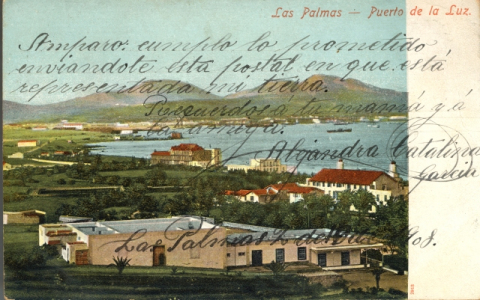 Las Palmas — Puerto de la Luz.
Amparo: cumplo lo prometido
enviandote esta postal en que está
representada mi tierra.
Recuerdos a tu mamá y á
tu amiga
Alejandra Catalina
García
Las Palmas 2 de 908.